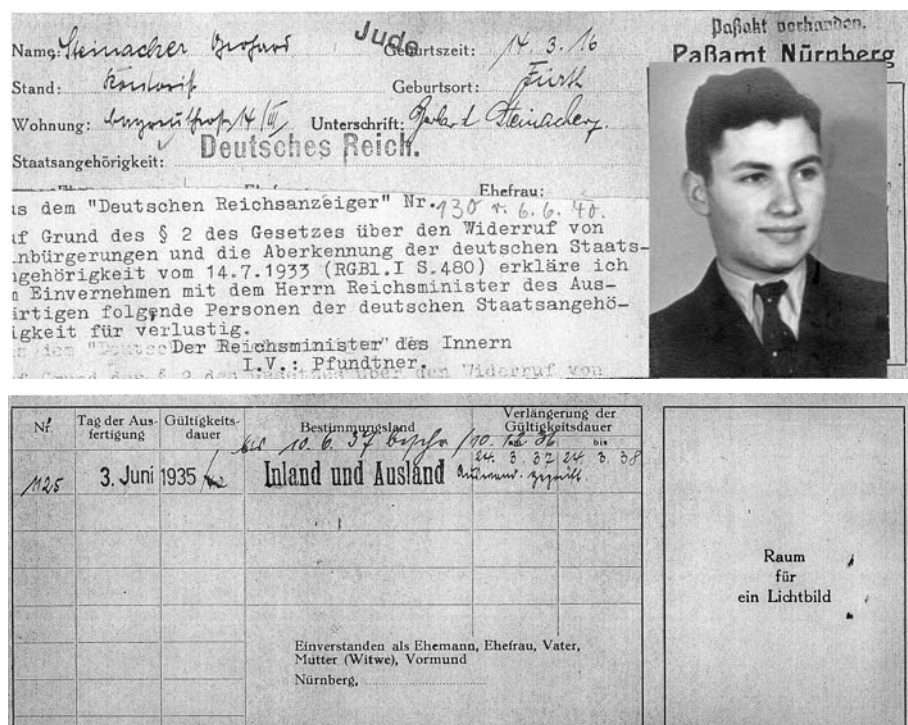 Jude
Paßakt vorhanden.
Paßamt Nürnberg
Name: Steinacher Gerhard
Geburtszeit: 14. 3. 16
Stand: Kontorist
Geburtsort: Fürth
Wohnung: 14/III
Unterschrift: Gerhard Steinacher.
Staatsangehörigkeit: Deutsches Reich.
Ehefrau:
us dem "Deutschen Reichsanzeiger" Nr. 130 v. 6. 6. 40.
uf Grund des § 2 des Gesetzes über den Widerruf von
nbürgerungen und die Aberkennung der deutschen Staats-
ngehörigkeit vom 14.7.1933 (RGBl.I S.480) erkläre ich
m Einvernehmen mit dem Herrn Reichsminister des Aus-
ärtigen folgende Personen der deutschen Staatsangehö-
igkeit für verlustig.
Der Reichsminister des Innern
I.V.: Pfundtner.
Grund des § 2 des Gesetzes über den Widerruf von
Nr.
Tag der Aus-
fertigung
Gültigkeits-
dauer
Bestimmungsland
Verlängerung der
Gültigkeitsdauer
bis
bis 10. 6. 37
24. 3. 37 24. 3. 38
1125
3. Juni 1935
Inland und Ausland
Raum
für
ein Lichtbild
Einverstanden als Ehemann, Ehefrau, Vater,
Mutter (Witwe), Vormund
Nürnberg,